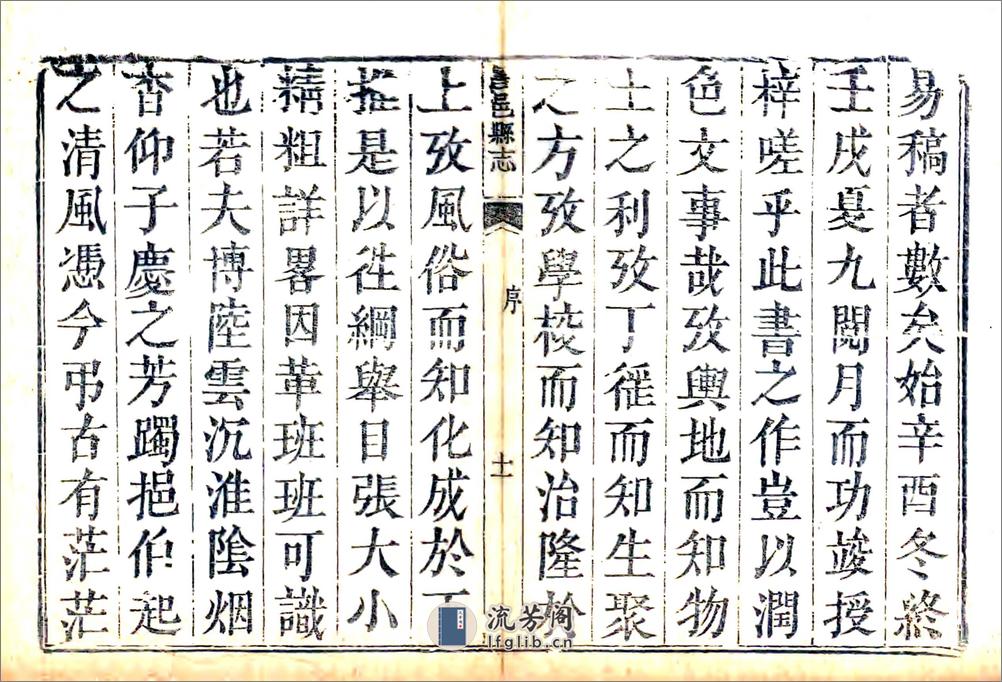 易稿者數矣始辛酉冬終
壬戌夏九閱月而功竣授
梓嗟乎此書之作豈以潤
色文事哉攷輿地而知物
土之利攷丁徭而知生聚
之方攷學校而知治隆於
昌邑縣志 序 十一
上攷風俗而知化成於下
推是以徃綱舉目張大小
精粗詳畧因革班班可識
也若夫博陸雲沉淮陰烟
杳仰子慶之芳躅挹伯起
之清風憑今弔古有茫茫
流芳閣
lfglib.cn